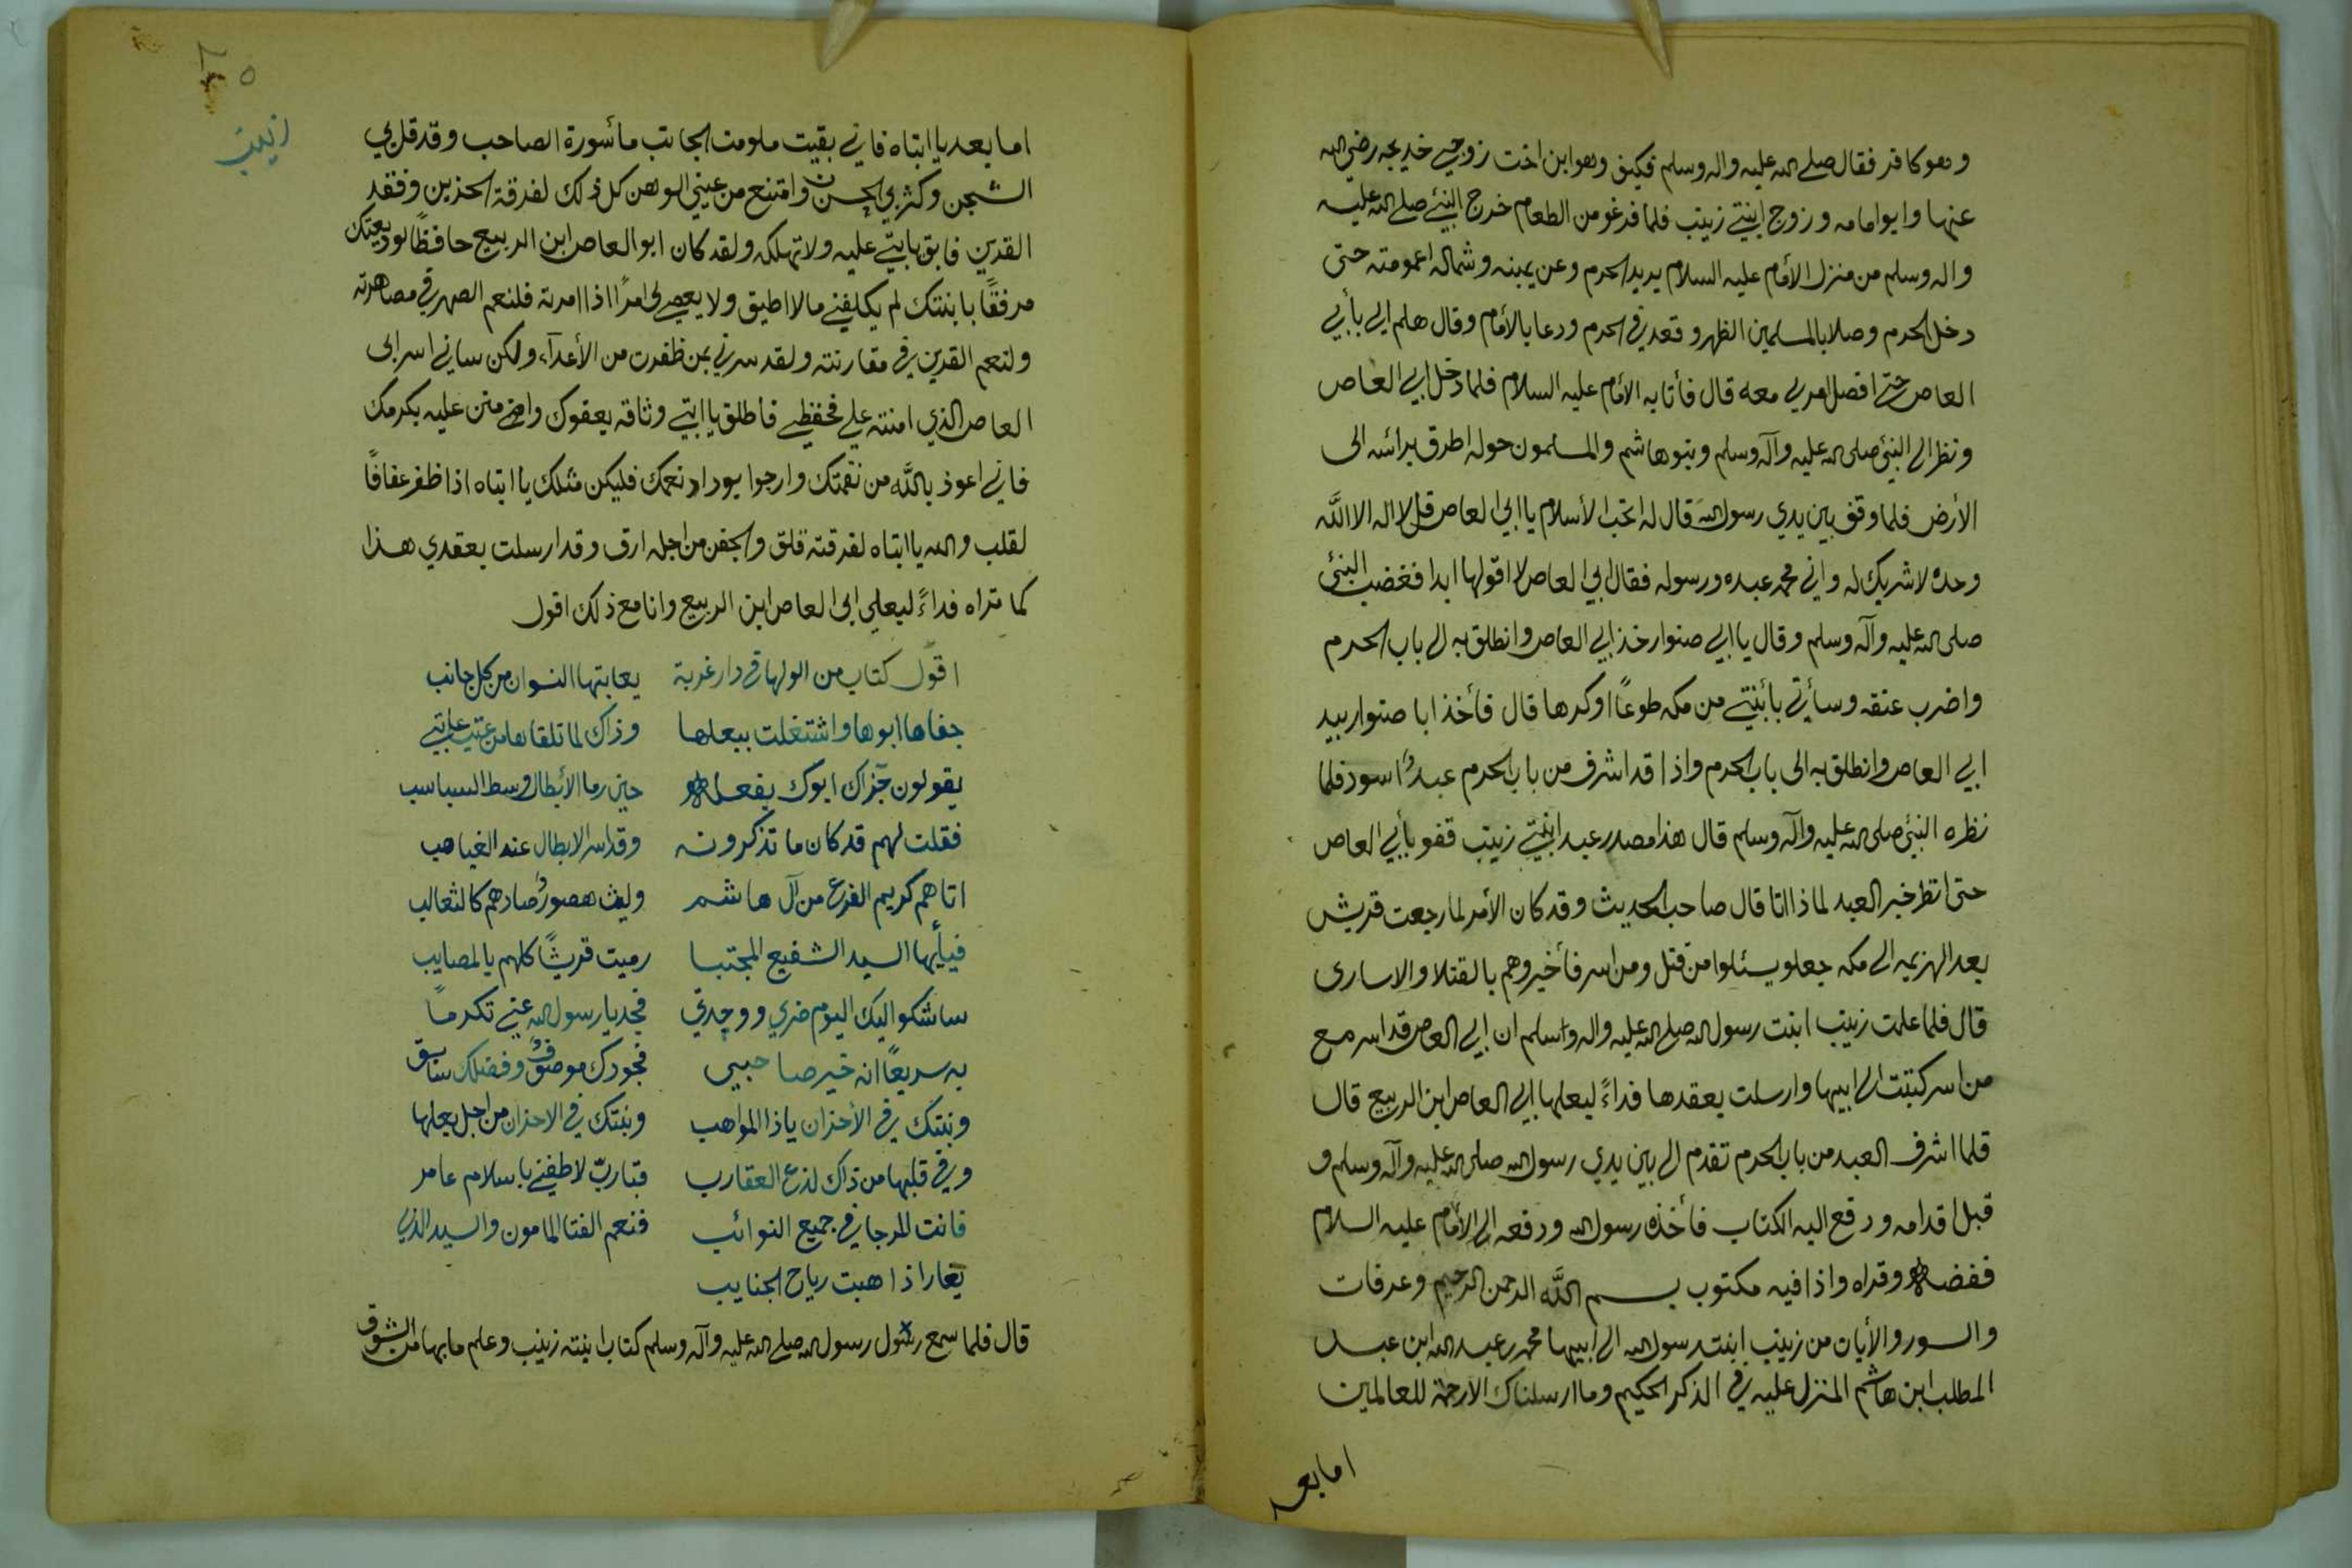 وهو كافر فقال صلى الله عليه واله وسلم فكيف وهو ابن اخت زوجي خديجه رضي الله
عنها وابو امامه وزوج ابنتي زينب فلما فرغو من الطعام خرج النبي صلى الله عليه
واله وسلم من منزل الأمام عليه السلام يريد الحرم وعن يمينه وشماله اعمومته حتى
دخل الحرم وصلا بالمسلمين الظهر وقعد في الحرم ودعا بالأمام وقال هلم الي بأبي
العاص حتى افصل امري معه قال فأتا به الأمام عليه السلام فلما دخل ابي العاص
ونظر الى النبي صلى الله عليه وآله وسلم وبنو هاشم والمسلمون حوله اطرق برائسه الى
الأرض فلما وقف بين يدي رسول الله قال له اتحب الأسلام يا ابي العاص قل لا اله الا اللَّه
وحده لا شريك له واني محمد عبده ورسوله فقال ابي العاص لا اقولها ابدا فغضب النبي
صلى الله عليه وآله وسلم وقال يا ابي صنوار خذ ابي العاص وانطلق به الى باب الحرم
واضرب عنقه وسأتي بأبنتي من مكه طوعًا او كرها قال فأخذ ابا صنوار بيد
ابي العاص وانطلق به الى باب الحرم واذا قد اشرف من باب الحرم عبدٌ اسود فلما
نظره النبي صلى الله عليه وآله وسلم قال هذا مصدر عبد ابنتي زينب قفو بأبي العاص
حتى انظر خبر العبد لماذا اتا قال صاحب الحديث وقد كان الأمر لما رجعت قريش
بعد الهزيمه الى مكه جعلو يسئلوا من قتل ومن اسر فأخبروهم بالقتلا والاسارى
قال فلما علمت زينب ابنت رسول الله صلى الله عليه واله واسلم ان ابي العاص قد اسر مع
من اسر كتبت الى ابيها وارسلت بعقدها فداءً لبعلها ابي العاص ابن الربيع قال
فلما اشرف العبد من باب الحرم تقدم الى بين يدي رسول الله صلى الله عليه وآله وسلم و
قبل اقدامه ودفع اليه الكتاب فأخذه رسول الله ودفعه الى الأمام عليه السلام
ففضه وقراه واذا فيه مكتوب بسم اللَّه الرحمن الرحيم وعرفات
والسور والأيات من زينب ابنت رسول الله الى ابيها محمد بن عبد الله ابن عبد
المطلب ابن هاشم المنزل عليه في الذكر الحكيم وما ارسلناك الا رحمة للعالمين
اما بعد
زينب
اما بعد يا ابتاه فاني بقيت ملومت الجانب مأسورة الصاحب وقد قل بي
الشجن وكثر بي الحسن وامتنع من عيني الوهن كل ذلك لفرقة الحزين وفقد
القرين فابق يا ابتي عليه ولا تهلكه ولقد كان ابو العاص ابن الربيع حافظًا لوديعتك
مرفقًا بابنتك لم يكلفني ما لا اطيق ولا يعصي لي امرًا اذا امرته فلنعم الصهر في مصاهرته
ولنعم القرين في مقارنته ولقد سرني بمن ظفرت من الأعدآء ولكن ساني اسر ابي
العاص الذي امنته علي فحفظي فاطلق يا ابتي وثاقه بعفوك وامنن عليه بكرمك
فاني اعوذ باللَّه من نقمتك وارجوا بوراد نعمك فليكن مثلك يا ابتاه اذا ظفر عفافًا
لقلب والله يا ابتاه لفرقته قلق والجفن من اجله ارق وقد ارسلت بعقدي هذا
كما تراه فداءً لبعلي ابي العاص ابن الربيع وانا مع ذلك اقول
اقول كتاب من الولها في دار غربة يعاتبها النسوان من كل جانب
جفاها ابوها واشتغلت ببعلها وذاك لما تلقاها من عتيب عاتبي
يقولون جزاك ابوك بفعله حين رما الأبطال وسط السباسب
فقلت لهم قد كان ما تذكرونه وقد اسر الابطال عند الغياهب
اتاهم كريم الفرع من آل هاشم وليث هصورٌ صادهم كالثعالب
فيأيها السيد الشفيع المجتبا رميت قريشًا كلهم بالمصايب
ساشكوا اليك اليوم ضري ووجدتي فجد يا رسول الله عني تكرمًا
به سريعًا انه خير صاحبي فجودك موصوفٌ وفضلك سابق
وبنتك في الأحزان يا ذا المواهب وبنتك في الاحزان من اجل بعلها
وفي قلبها من ذاك لذع العقارب فتا ربّ لاطفني باسلام عامر
فانت للمرجا في جميع النوائب فنعم الفتا المامون والسيد الذي
يغار اذا هبت رياح الجنايب
قال فلما سمع رسول الله صلى الله عليه وآله وسلم كتاب ابنته زينب وعلم ما بها من الشوق